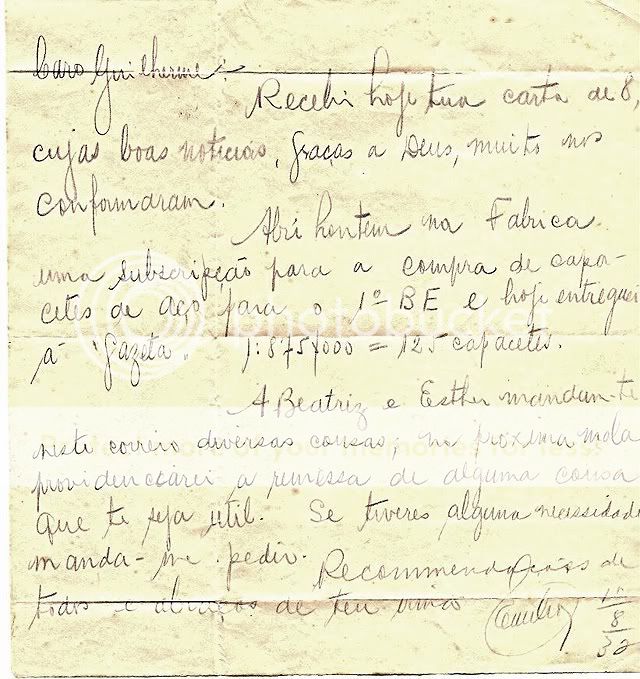 Caro Guilherme
Recebi hoje tua carta de 8,
cujas boas noticias, graças a Deus, muito nos
conformaram.
Abri hontem na Fabrica
uma subscripção para a compra de capa-
cetes de aço para o 1º BE e hoje entreguei
á "Gazeta" 1:875$000 = 125 capacetes.
A Beatriz e Esther mandam-te
neste correio diversas cousas, na proxima mala
providenciarei a remessa de alguma cousa
que te seja util. Se tiveres alguma necessidade
manda-me pedir.
Recommendações de
todos e abraços de teu
15
8
32
photobucket
of your memories for less!